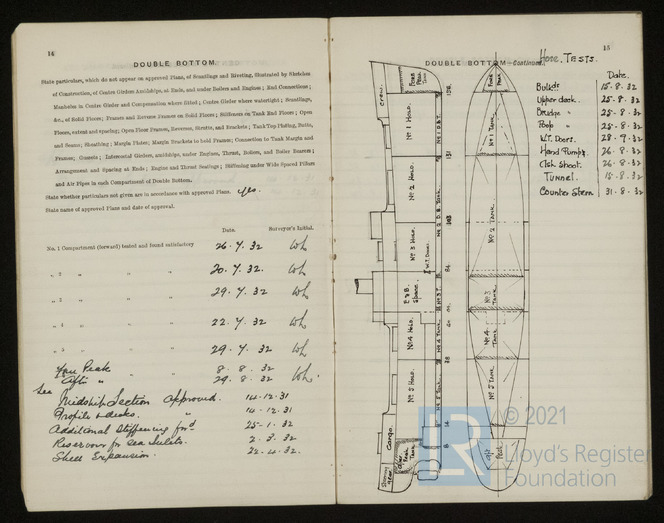 14
DOUBLE BOTTOM.
State particulars, which do not appear on approved Plans, of Scantlings and Riveting, illustrated by Sketches
of Construction, of Centre Girders Amidships, at Ends, and under Boilers and Engines; End Connections;
Manholes in Centre Girder and Compensation where fitted; Centre Girder where watertight; Scantlings,
&c., of Solid Floors; Frames and Reverse Frames on Solid Floors; Stiffeners on Tank End Floors; Open
Floors, extent and spacing; Open Floor Frames, Reverses, Struts, and Brackets; Tank Top Plating, Butts,
and Seams; Sheathing; Margin Plates; Margin Brackets to hold Frames; Connection to Tank Margin and
Frames; Gussets; Intercostal Girders, amidships, under Engines, Thrust, Boilers, and Boiler Bearers;
Arrangement and Spacing at Ends; Engine and Thrust Seatings; Stiffening under Wide Spaced Pillars
and Air Pipes in each Compartment of Double Bottom.
State whether particulars not given are in accordance with approved Plans. Yes.
State name of approved Plans and date of approval.
Date. Surveyor's Initial.
No. 1 Compartment (forward) tested and found satisfactory 26.7.32 Wh
„ 2 „ „ „ 20.7.32 Wh
„ 3 „ „ „ 29.7.32 Wh
„ 4 „ „ „ 22.7.32 Wh
„ 5 „ „ „ 29.7.32 Wh
Fore Peak 8.8.32
Aft „ 29.8.32 Wh
Midship Section approved. 14.12.31
Profile & decks. „ 14.12.31
Additional Stiffening for'd 25.1.32
Reservoir for sea inlets. 2.3.32
Shell Expansion. 22.4.32.
15
DOUBLE BOTTOM—Continued.
Hose Tests.
Date.
Bulkds 15.8.32
Upper deck. 25.8.32
Bridge „ 25.8.32
Poop „ 25.8.32
W.T. Doors. 28.9.32
Hand Pumps 26.8.32
Ash Shoot. 26.8.32
Tunnel. 15.8.32
Counter Stern 31.8.32
Crew.
Fore Peak Tank
No 1 Hold.
No 2 Hold.
No 3 Hold.
W.T. Door.
E & B. Space.
No 4 Hold.
No 5 Hold.
Cargo.
After Peak Tank
Steering Gear.
No 1 D.B.T.
No 2 D.B. Tank.
No 3 T.
No 4 Tank
No 5 Tank
131
103
84
38
14
Fore Peak
No 1 Tank
No 2 Tank.
No 3 Tank
No 4 Tank.
No 5 Tank
Aft Peak
LR
© 2021
Lloyd's Register
Foundation